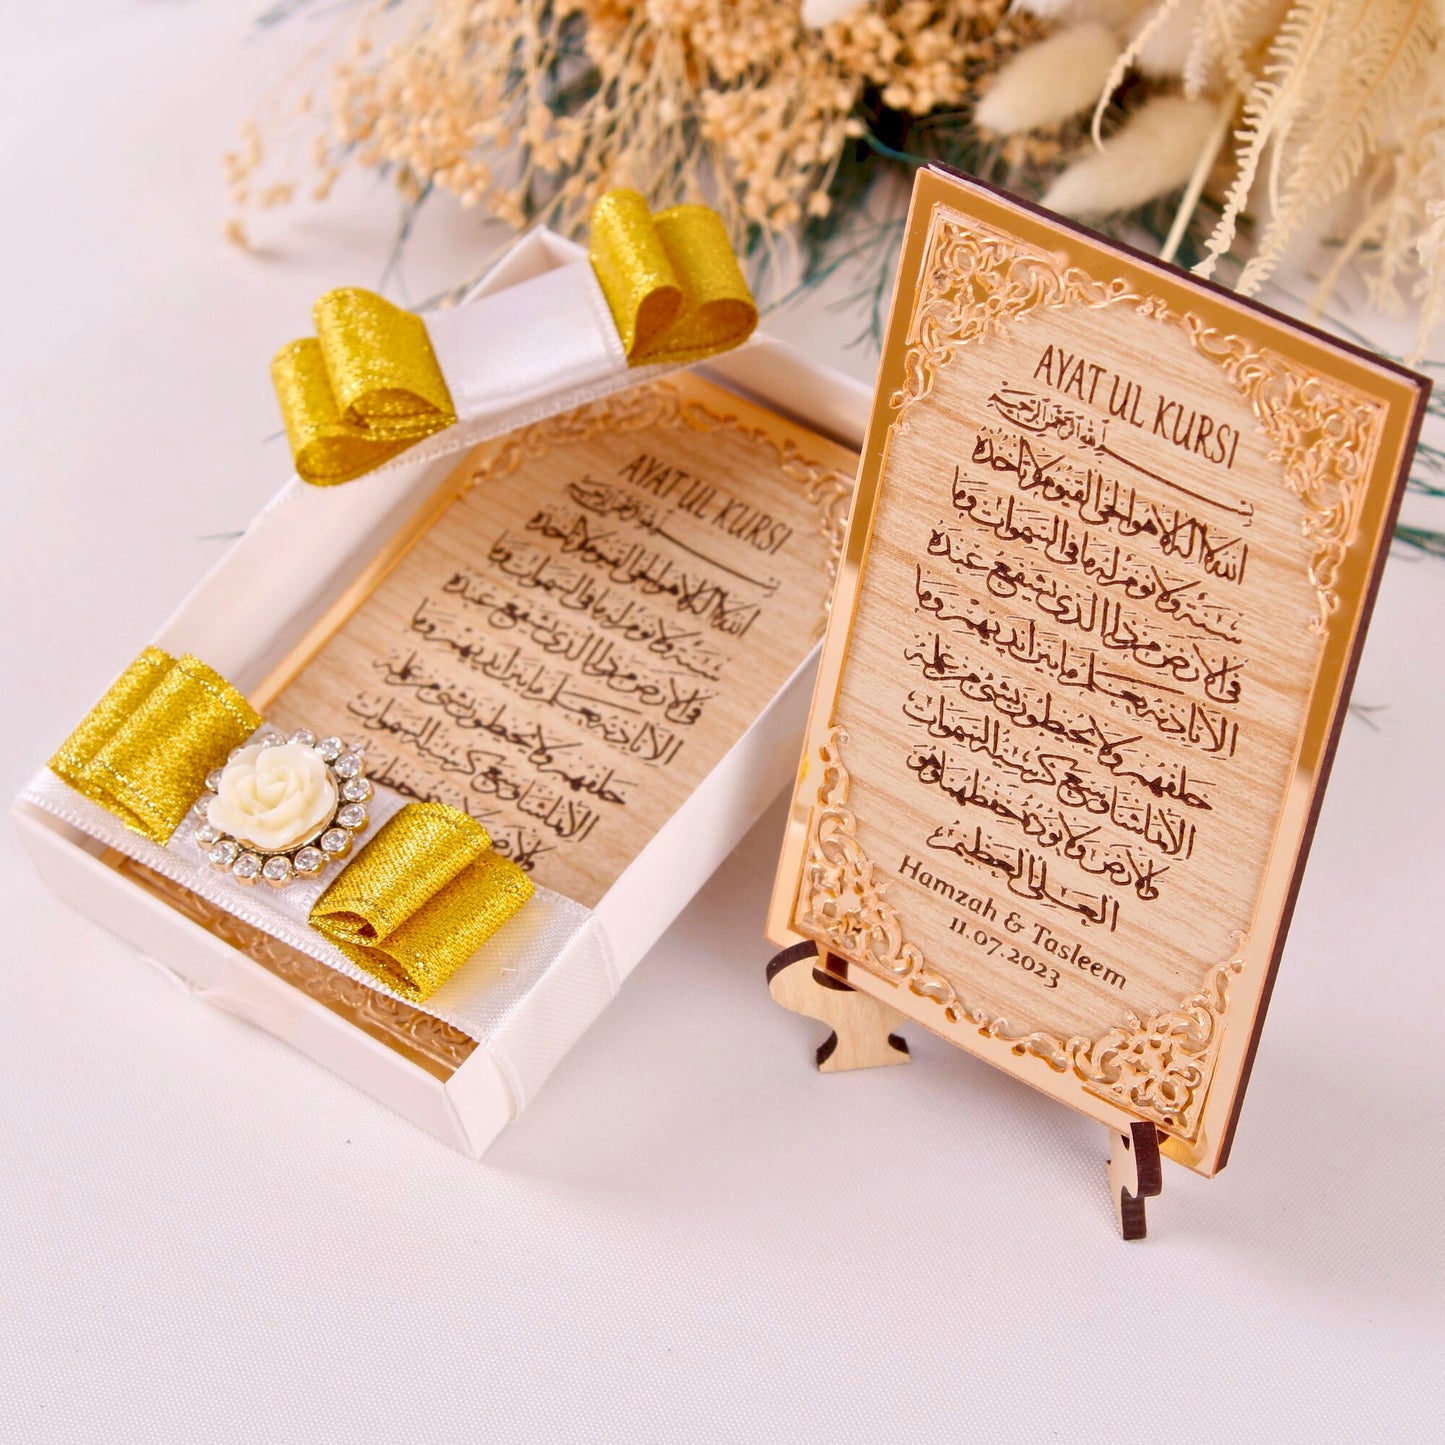 AYAT UL KURSI
بسم الله الرحمن الرحيم
الله لا اله الا هو الحي القيوم لا تأخذه
سنة ولا نوم له ما في السموات وما
في الارض من ذا الذي يشفع عنده
الا باذنه يعلم ما بين ايديهم وما
خلفهم ولا يحيطون بشيء من علمه
الا بما شاء وسع كرسيه السموات
AYAT UL KURSI
بسم الله الرحمن الرحيم
الله لا اله الا هو الحي القيوم لا تأخذه
سنة ولا نوم له ما في السموات وما
في الارض من ذا الذي يشفع عنده
الا باذنه يعلم ما بين ايديهم وما
خلفهم ولا يحيطون بشيء من علمه
الا بما شاء وسع كرسيه السموات
والارض ولا يؤده حفظهما وهو
العلي العظيم
Hamzah & Tasleem
11.07.2023